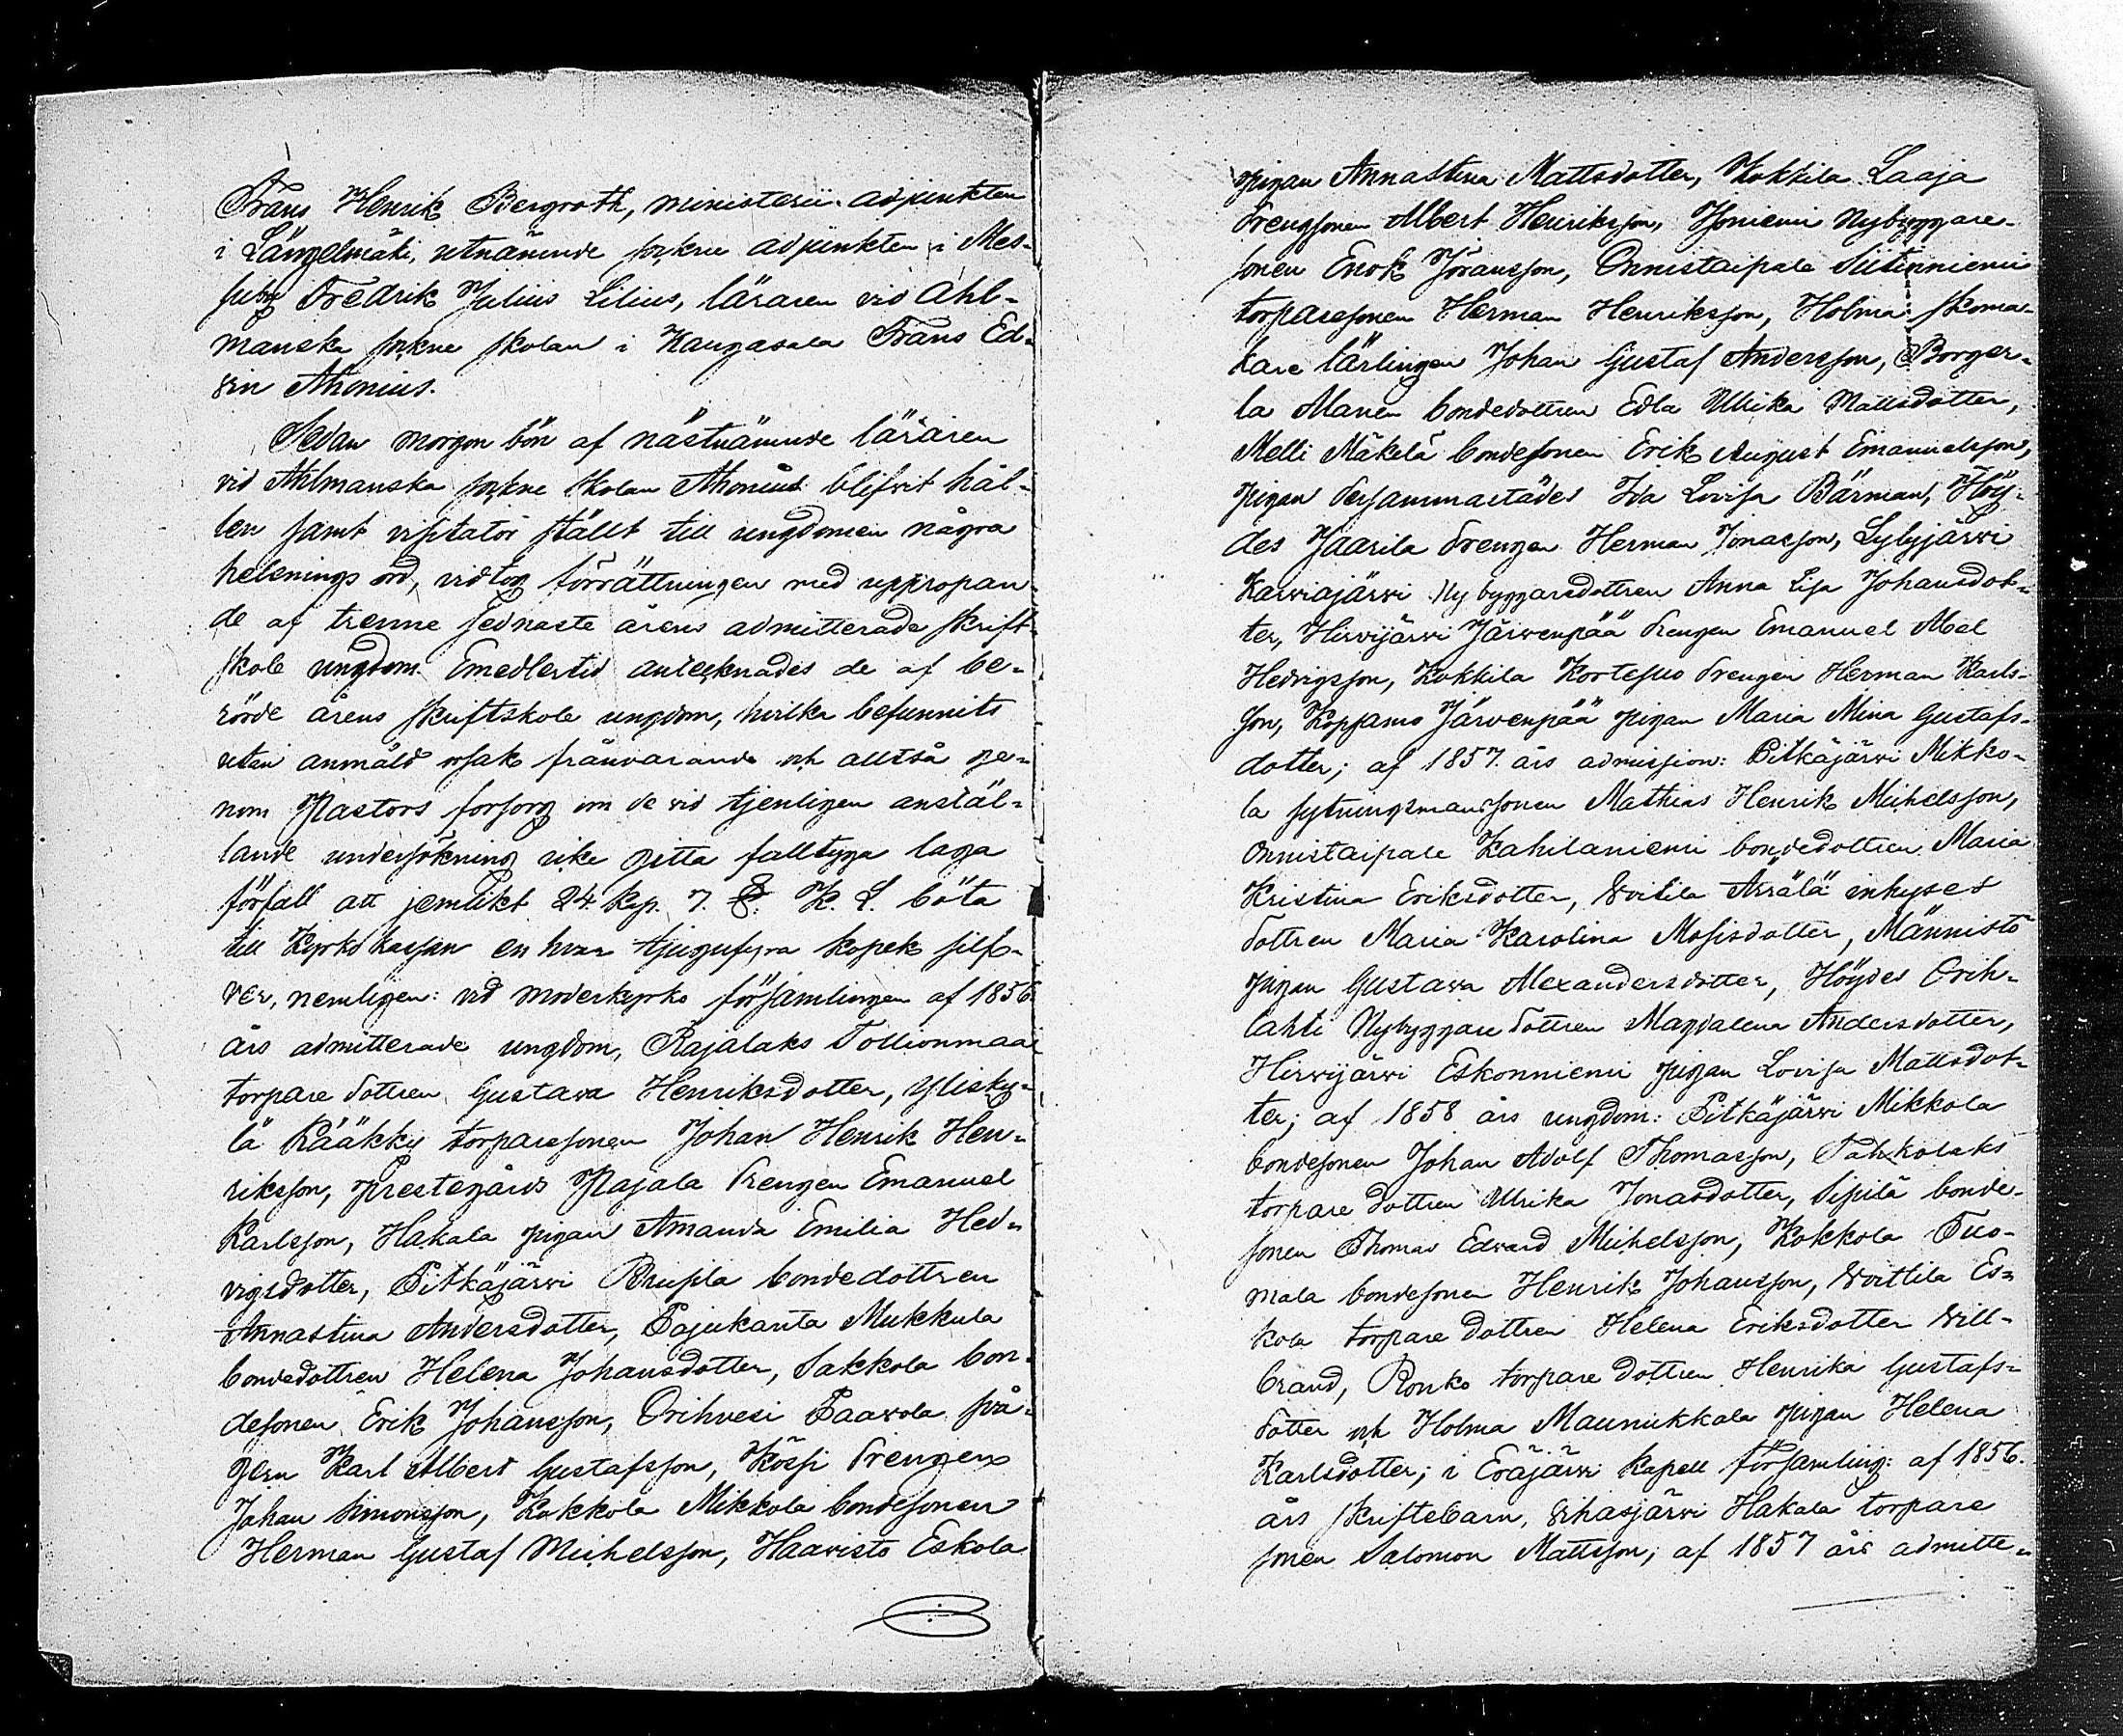 Frans Henrik Bergroth, ministerii adjunkten
i Längelmäki, utnämnde sockne adjunkten i Mes-
suby Fredrik Julius Lilius, läraren vid Ahl-
manska sockne skolan i Kangasala Frans Ed-
vin Ahonius.
Sedan morgon bön af nästnämnde läraren
vid Ahlmanska sockne skolan Ahonius blifvit hål-
len samt visitator ställt till ungdomen några
helsnings ord, vidtog förrättningen med uppropan-
de af trenne sednaste årens admitterade skrift-
skole ungdom. Emedlertid antecknades de af be-
rörde årens skriftskole ungdom, hvilka befunnits
utan anmäld orsak frånvarande och alltså ge-
nom Pastors försorg om de vid tjenligen anstäl-
lande undersökning icke gitta fulltyga laga
förfall att jemlikt 24 Kap. 7. §. K. L. böta
till Kyrkokassan en hvar tjugufyra kopek silf-
ver, nemligen: vid moderkyrko församlingen af 1856
års admitterade ungdom, Rajalaks Tollionmaa
torpare dottren Gustava Henriksdotter, Ylisky-
lä Rääkky torparesonen Johan Henrik Hen-
riksson, Prestegårds Pajala drengen Emanuel
Karlsson, Hakala pigan Amanda Emilia Hed-
vigsdotter, Pitkäjärvi bondedottren
Annastina Andersdotter, Pajukanta Mukkula
bondedottren Helena Johansdotter, Sakkola bon-
desonen Erik Johansson, Orihvesi Paavola
Karl Albert Gustafsson, Kössi drengen
Johan Simonsson, Kokkola Mikkola bondesonen
Herman Gustaf Michelsson, Haavisto Eskola
pigan Annastina Mattsdotter, Kokkila Laaja
drengsonen Albert Henriksson, Isoniemi Nybyggare-
sonen Enok Jöransson, Onnistaipale Siitinniemi
torparesonen Herman Henriksson, Holma skoma-
kare lärlingen Johan Gustaf Andersson, Borger-
la Manen bondedottren Edla Ulrika Mattsdotter,
Melli Mäkelä bondesonen Erik August Emanuelsson,
pigan dersammastädes Ida Lovisa Bärman, Höy-
des Jaarila drengen Herman Jonasson, Lylyjärvi
Karviajärvi Nybyggaredottren Anna Lisa Johansdot-
ter, Hirvijärvi Järvenpää drengen Emanuel Abel
Hedvigsson, Kokkila Kortesuo drengen Herman Karls-
son, Koppamo Järvenpää pigan Maria Mina Gustafs-
dotter; af 1857. års admission: Pitkäjärvi Mikko-
la sytningsmanssonen Mathias Henrik Michelsson,
Onnistaipale Kahilaniemi bondedottren Maria
Kristina Eriksdotter, Voitila Assälä inhyses
dottren Maria Karolina Mosisdotter, Männistö
pigan Gustava Alexandersdotter, Höydes Orih-
lahti Nybyggare dottren Magdalena Andersdotter,
Hirvijärvi Eskonniemi pigan Lovisa Mattsdot-
ter; af 1858 års ungdom: Pitkäjärvi Mikkola
bondesonen Johan Adolf Thomasson, Pahkolaks
torpare dottren Ulrika Jonasdotter, Sipilä bonde-
sonen Thomas Edvard Michelsson, Kokkola Tuo-
mala bondesonen Henrik Johansson, Voittila Es-
kola torpare dottren Helena Eriksdotter Vill-
brand, Ronko torpare dottren Henrika Gustafs-
dotter och Holma Maunukkala pigan Helena
Karlsdotter; i Eräjärvi Kapell församling: af 1856.
års skriftebarn, Vihasjärvi Hakala torpare
sonen Salomon Mattsson; af 1857 års admitte-